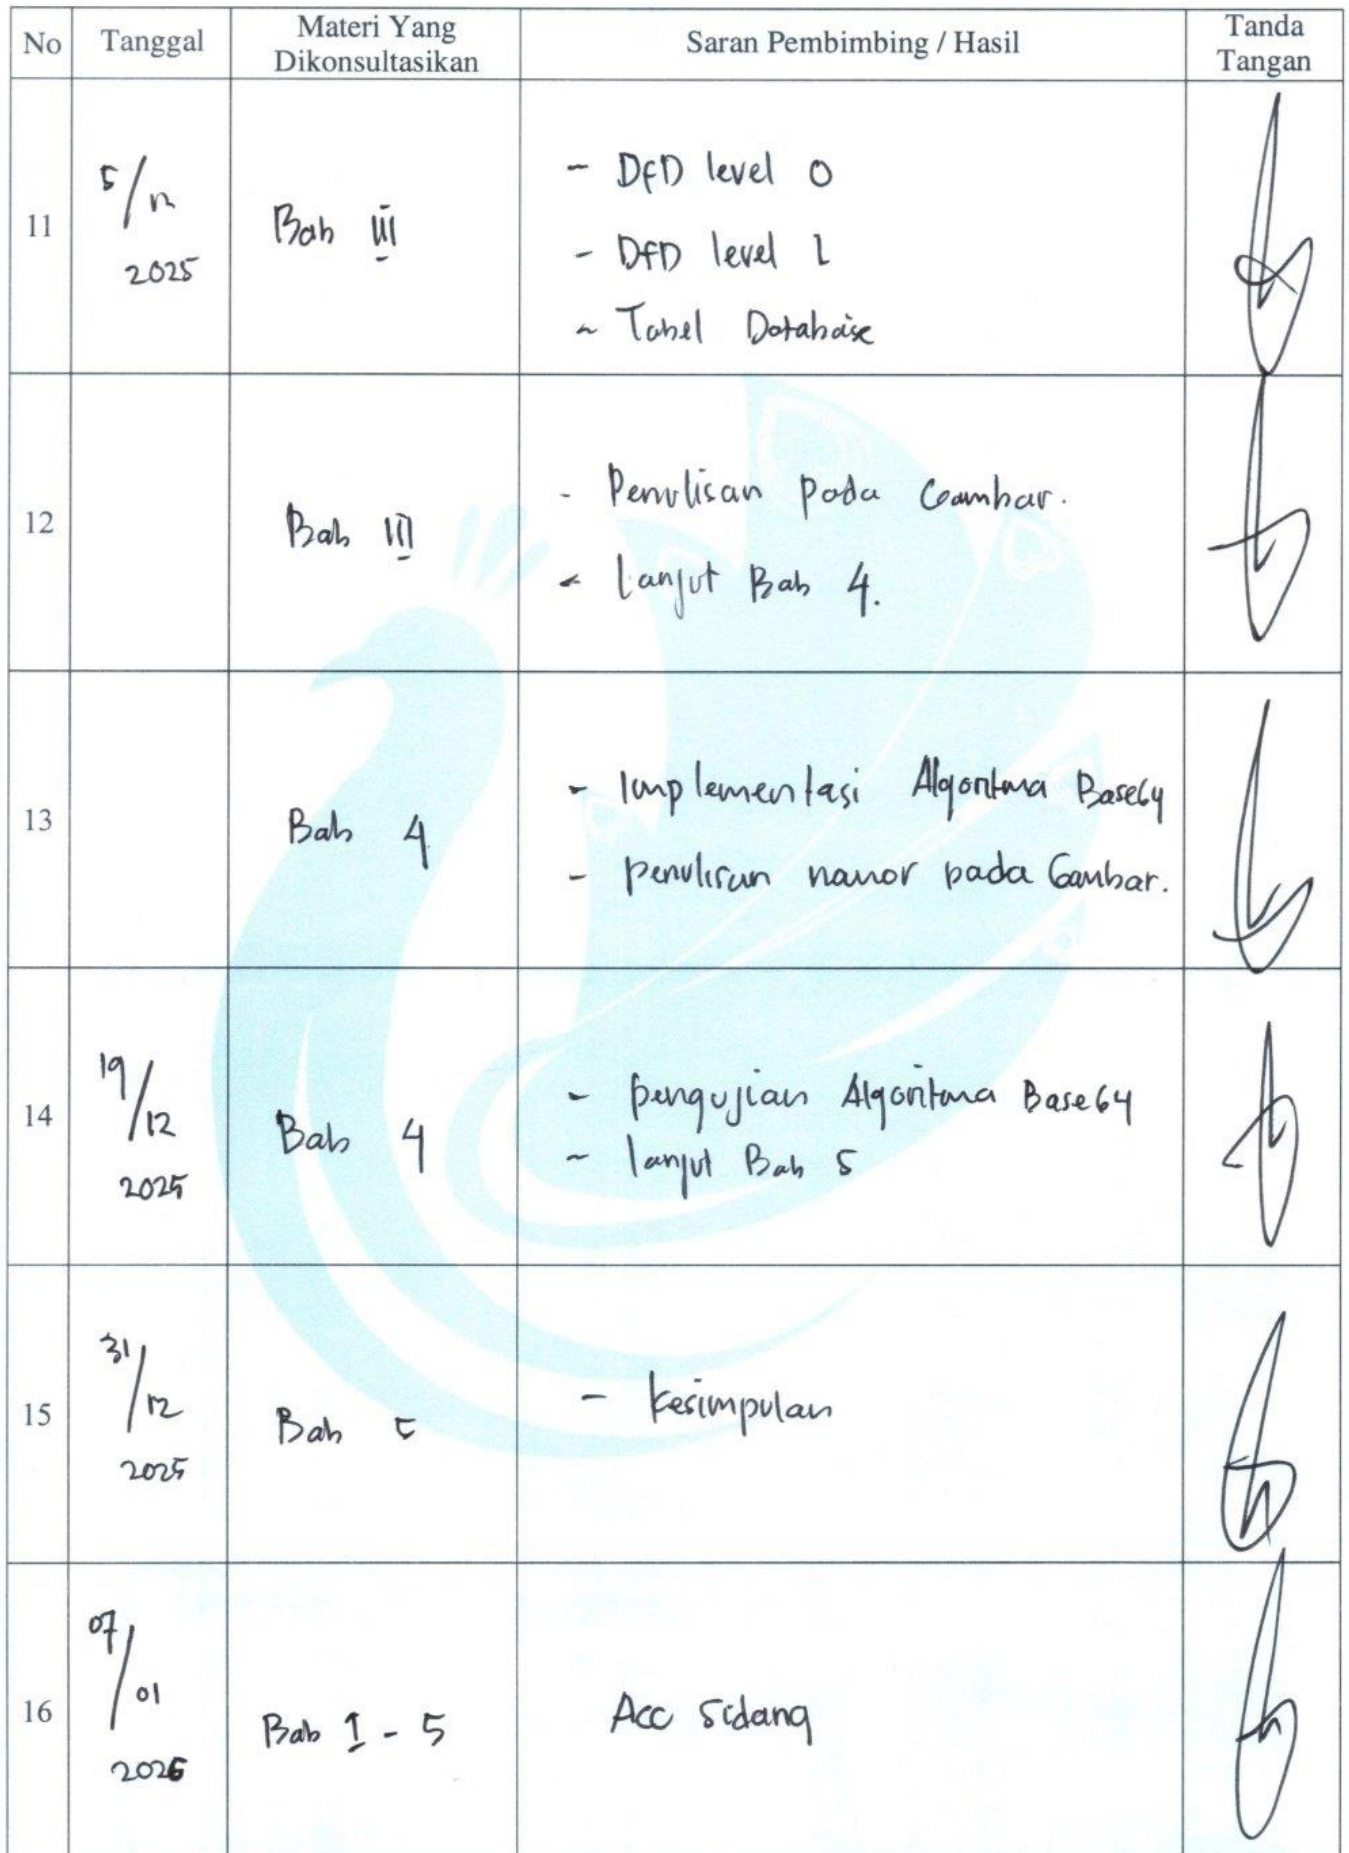 No Tanggal Materi Yang Dikonsultasikan Saran Pembimbing / Hasil Tanda Tangan
11 5/12 2025 Bab III
- DFD level 0
- DFD level 1
- Tabel Database
12 Bab III
- Penulisan pada Gambar.
- lanjut Bab 4.
13 Bab 4
- Implementasi Algoritma Base64
- penulisan nomor pada Gambar.
14 19/12 2025 Bab 4
- pengujian Algoritma Base64
- lanjut Bab 5
15 31/12 2025 Bab 5
- kesimpulan
16 07/01 2026 Bab I - 5
Acc Sidang